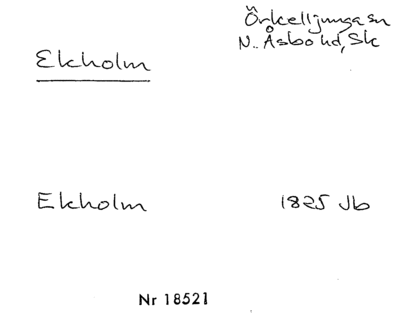 Örkelljunga sn
N. Åsbo hd, Sk
Ekholm
Ekholm 1825 Jb
Nr 18521